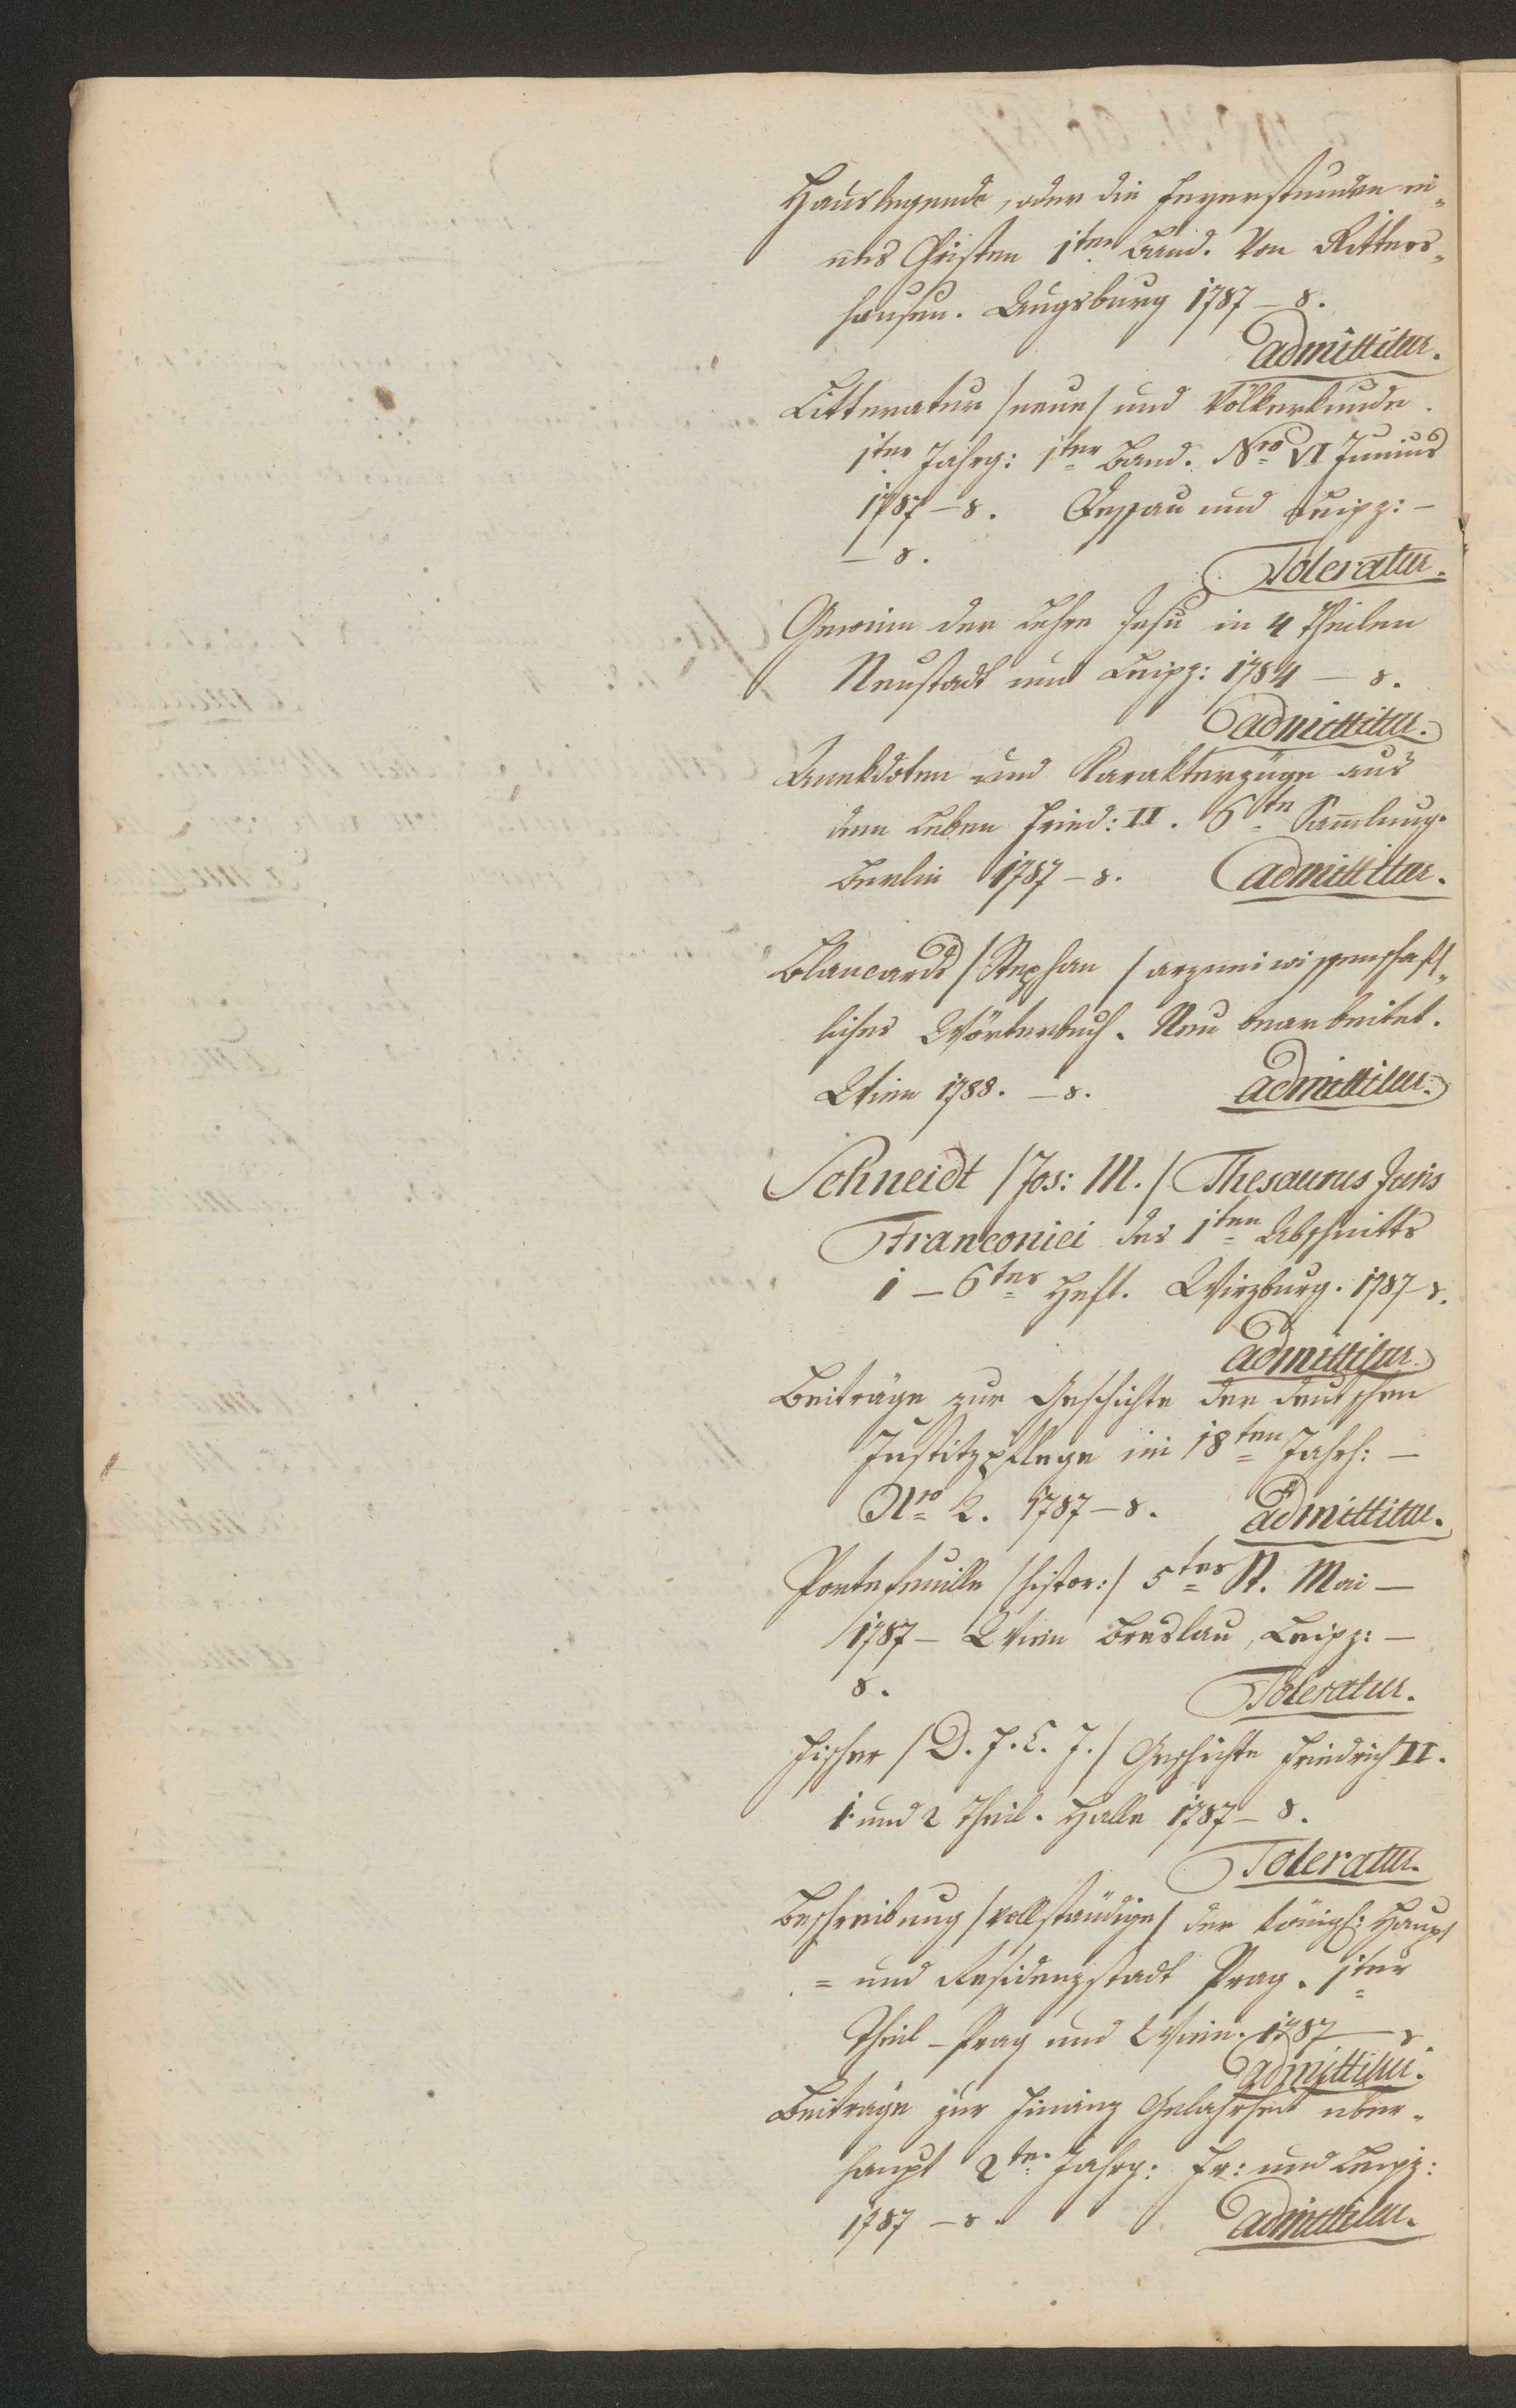 Hauslegende, oder die Feyerstunden ei„
nes Christen 1ter Band. Von Ritters„
hausen. Augsburg 1787 – 8.
admittitur.
Litteratur /neue/ und Völkerkunde.
1ter Jahrg: 1ter Band. Nro VI Junius
1787 – 8. Dessau und Leipz: –
– 8.
Toleratur.
Gewinn der Lehre Jesu in 4 Theilen
Neustadt und Leipz: 1784 – 8.
admittitur.
Anekdoten und Karakterzüge aus
dem Leben Fried: II. 6te Samlung.
Berlin 1787 – 8. admittitur.
Blancards /Stephan/ arzneiwissenschaft„
liches Wörterbuch. Neu bearbeitet.
Wien 1788. – 8. admittitur.
Schneidt /Jos: M./ Thesaurus Juris
Franconici des 1ten Abschnitts
1 – 6tes Heft. Wirzburg. 1787 – 8.
admittitur
Beiträge zur Geschichte der deutschen
Justitzpflege im 18ten Jahrh: –
Nro 2. 1787 – 8. admittitur.
Portefeuille /histor:/ 5tes St. Mai –
1787 – Wien Breslau, Leipz: –
8. Toleratur.
Fischer /D. F. C. J./ Geschichte Friedrich II.
1 und 2 Theil. Halle 1787 – 8.
Toleratur.
Beschreibung /vollständige/ der königl: Haupt
= und Residenzstadt Prag. 1ter
Theil – Prag und Wien. 1787 – 8.
admittitur.
Beiträge zur Finanz Gelahrheit über„
haupt 2ter Jahrg: Fr: und Leipz:
1787 – 8. admittitur.